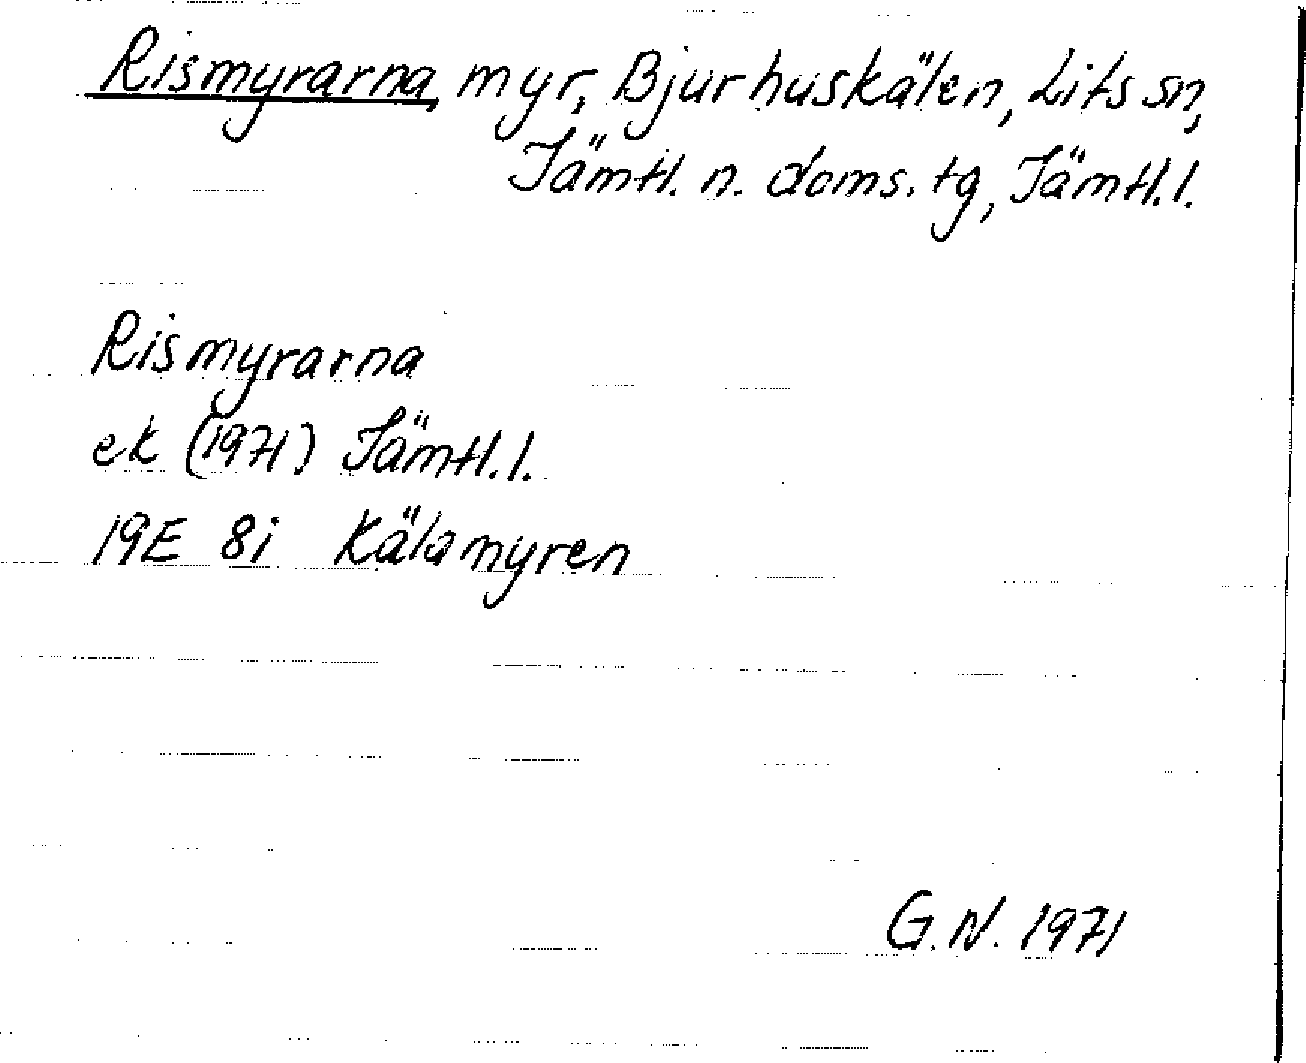 Rismyrarna, myr, Bjurhuskälen, Lits sn,
Jämtl. n. doms. tg, Jämtl. l.
Rismyrarna
ek (1971) Jämtl. l.
19E 8i Kälamyren
G.N. 1971